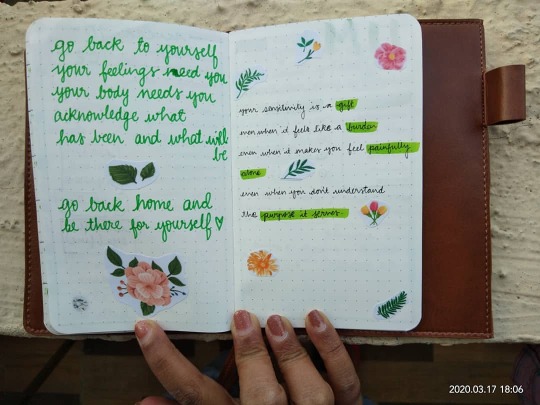 go back to yourself
your feelings need you
your body needs you
acknowledge what
has been and what will
be
go back home and
be there for yourself ♡
your sensitivity is a gift
even when it feels like a burden
even when it makes you feel painfully
alone
even when you don't understand
the purpose it serves.
2020.03.17 18:06